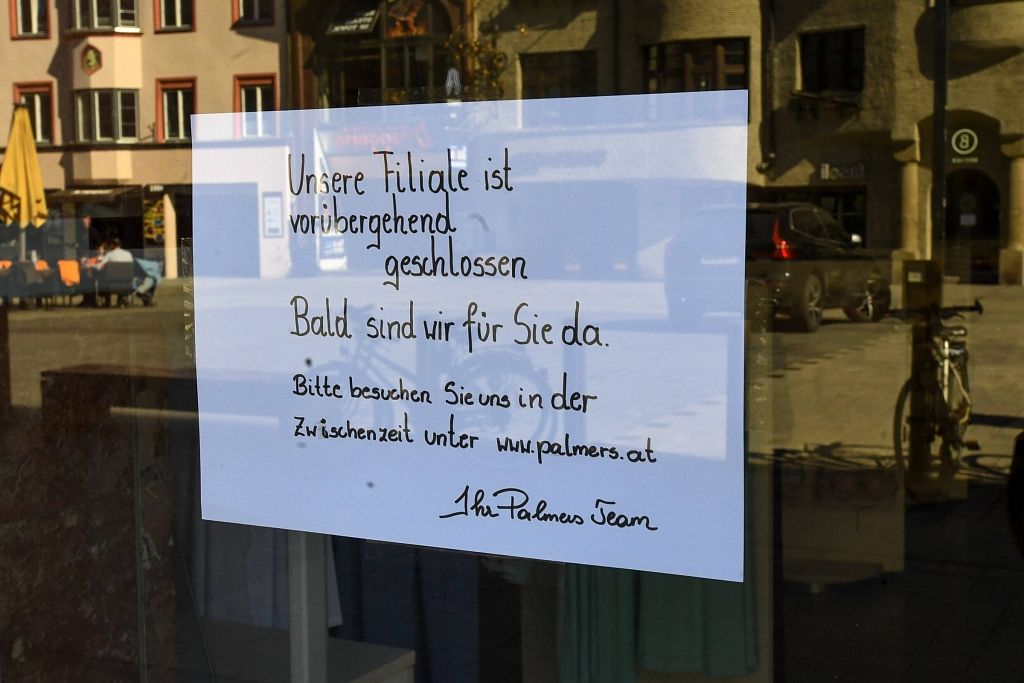 Unsere Filiale ist
vorübergehend
geschlossen
Bald sind wir für Sie da.
Bitte besuchen Sie uns in der
Zwischenzeit unter www.palmers.at
Ihr Palmers Team